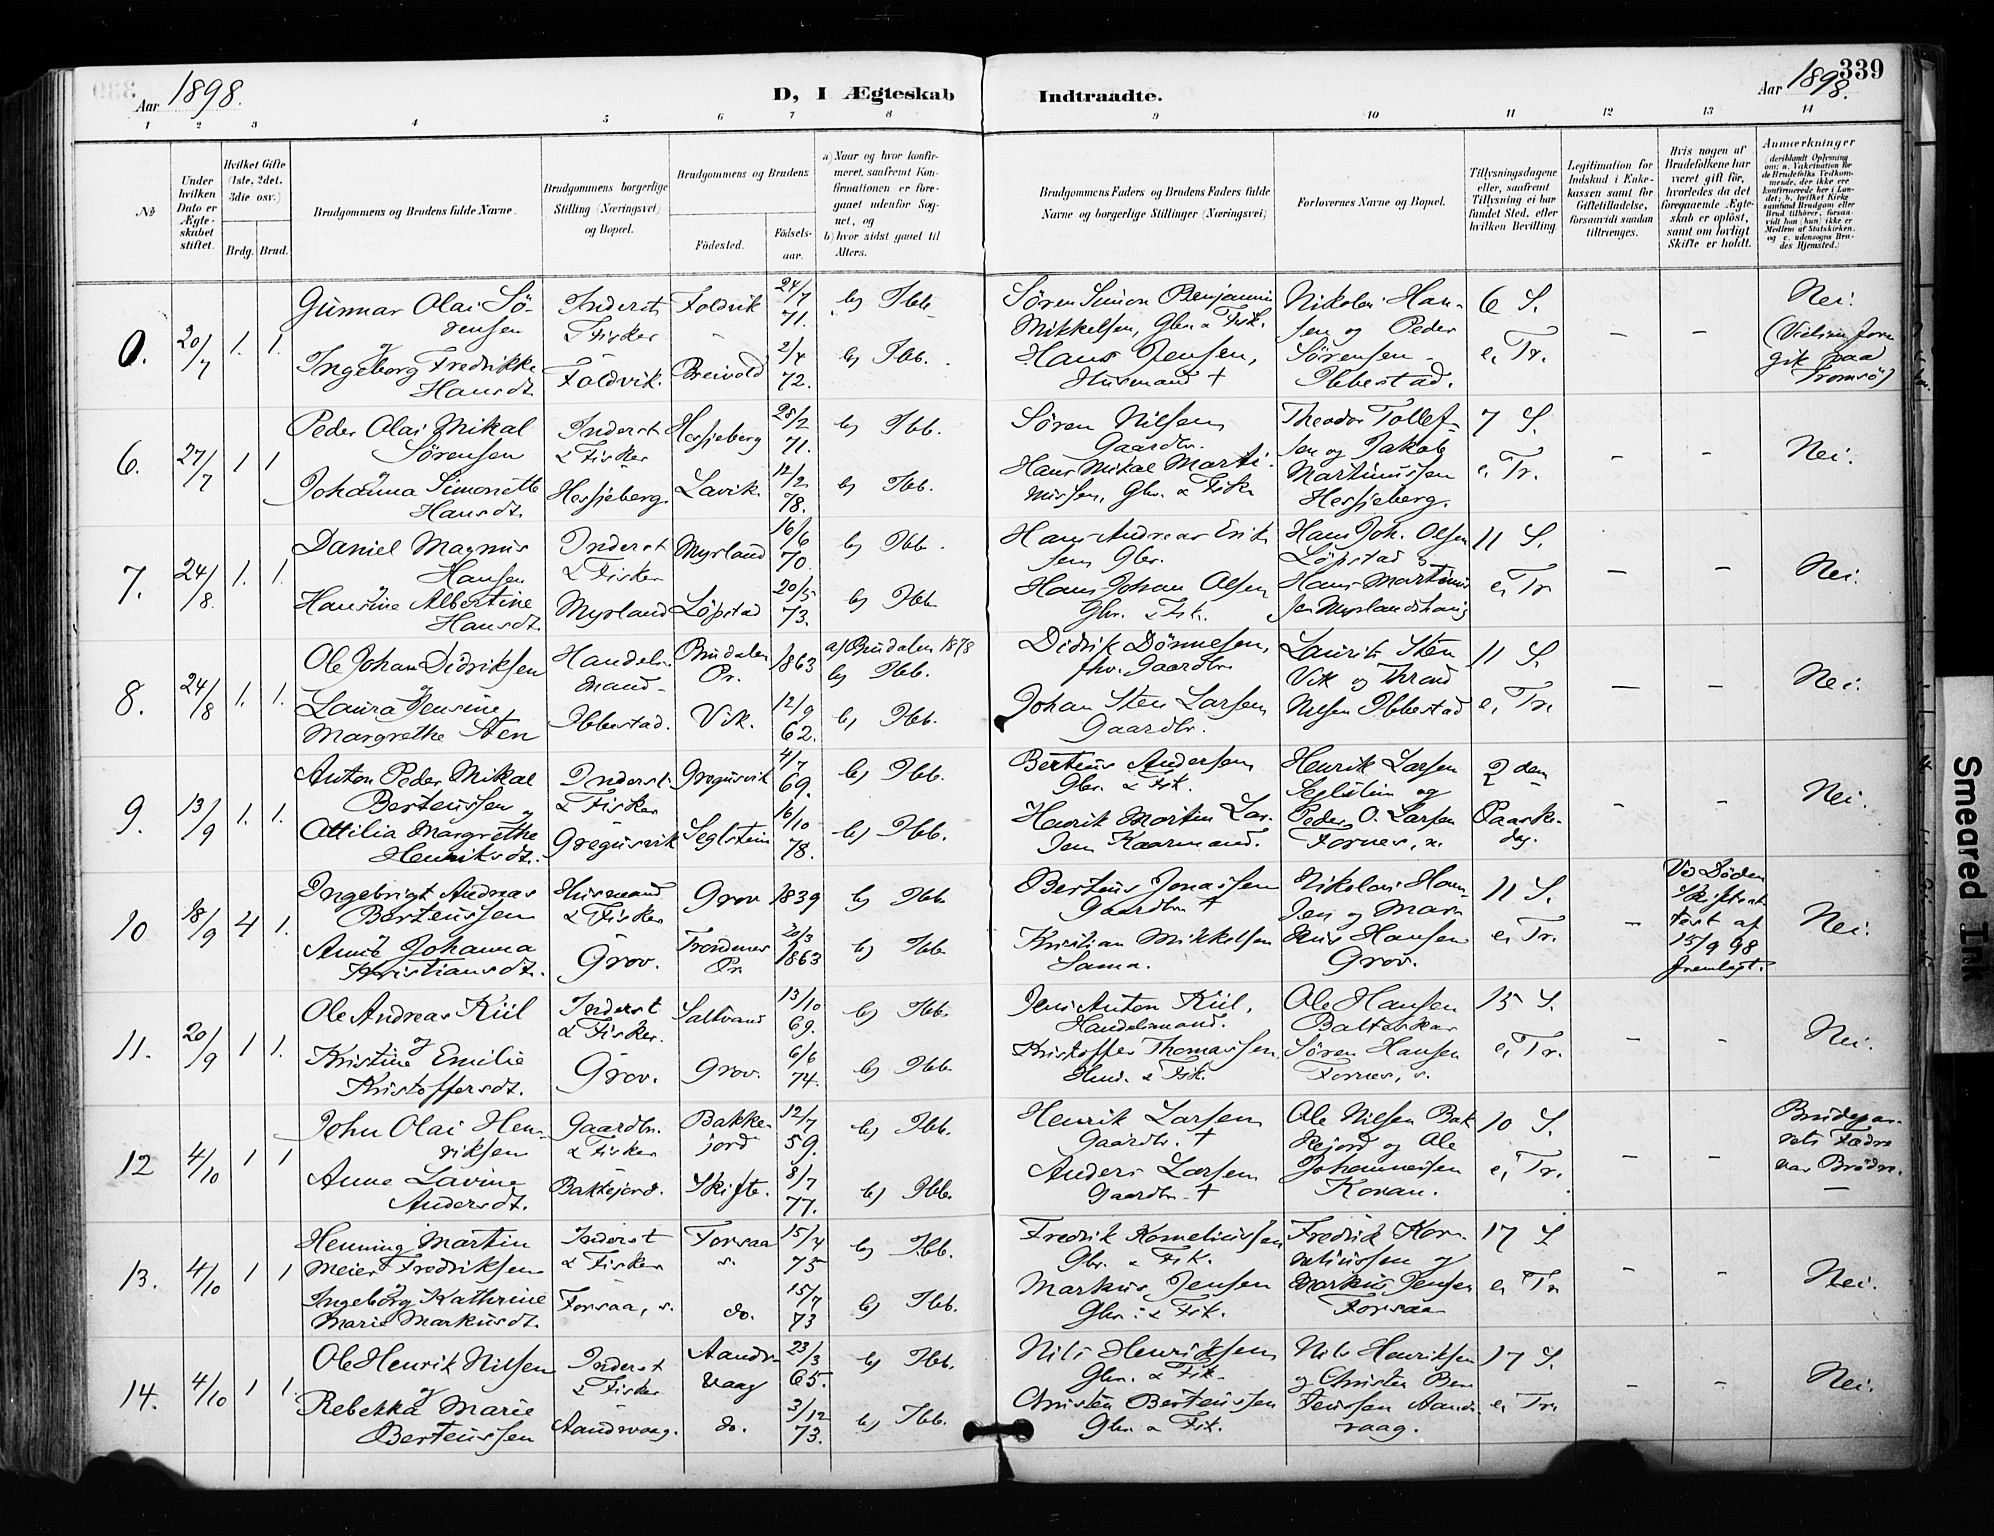 Aar 1898.
D, I Ægteskab Indtraadte.
Aar 1898. 339
1 2 3 4 5 6 7 8 9 10 11 12 13 14
№
Under hvilken Dato er Ægteskabet stiftet.
Hvilket Gifte (1ste, 2det, 3die osv.)
Brdg. Brud.
Brudgommens og Brudens fulde Navne.
Brudgommens borgerlige Stilling (Næringsvei) og Bopæl.
Brudgommens og Brudens
Fødested.
Fødselsaar.
a) Naar og hvor konfirmeret, saafremt Konfirmationen er foregaaet udenfor Sognet, og
b) hvor sidst gaaet til Alters.
Brudgommens Faders og Brudens Faders fulde Navne og borgerlige Stillinger (Næringsvei)
Forlovernes Navne og Bopæl.
Tillysningsdagene eller, saafremt Tillysning ei har fundet Sted, efter hvilken Bevilling.
Legitimation for Indskud i Enkekassen samt for Giftetilladelse, forsaavidt saadan tiltrænges.
Hvis nogen af Brudefolkene har været gift før, hvorledes da det foregaaende Ægteskab er opløst, samt om lovligt Skifte er holdt.
Anmærkninger
0. 20/7 1. 1.
Gunnar Olai Sørensen
og
Ingeborg Fredrikke Hansdt.
Inderst & Fisker Foldvik.
Foldvik 24/7 71.
Breivold 2/4 72.
b) Ibb.
b) Ibb.
Søren Simon Benjamin Mikkelsen, Gbr. & Fisk.
Hans Jensen, Husmand +
Nikolai Hansen og Peder Sørensen Ibbestad.
6 S. e. Tr.
- -
Nei.
(Vielsen foregik paa Tromsø)
6. 27/7 1 1
Peder Olai Mikal Sørensen
og
Johanna Simonette Hansdt.
Inderst & Fisker Hessjeberg.
Hessjeberg 28/2 71.
Lavik 12/2 78.
b) Ibb.
b) Ibb.
Søren Nilsen Gaardbr.
Hans Mikal Martinussen, Gbr. & Fisk.
Theodor Tollefsen og Jakob Martinussen Hessjeberg.
7 S. e. Tr.
- -
Nei.
7. 24/8. 1. 1.
Daniel Magnus Hansen
og
Hansine Albertine Hansdt.
Inderst & Fisker Myrland
Myrland 16/6 70.
Løpstad 20/5 73.
b) Ibb.
b) Ibb
Hans Andreas Eriksen Gbr.
Hans Johan Olsen Gbr. & Fisk.
Hans Joh. Olsen Løpstad &
11 S. e. Tr
- -
Nei.
8. 24/8 1. 1.
Ole Johan Didriksen
og
Laura Jensine Margrethe Sten
Handelsmand Ibbestad.
Pr. 1863
Vik. 12/9 62.
1878
b) Ibb.
b) Ibb.
Didrik Dønnesen, fhv. Gaardbr.
Johan Sten Larsen Gaardbr.
Laurits Sten Vik og Thrand Nilsen Ibbestad
11 S. e. Tr.
- -
Nei.
9. 13/9 1. 1.
Anton Peder Mikal Berteussen og
Attilia Margrethe Henriksdt.
Inderst & Fisker Gregusvik
Gregusvik 4/7 69.
Seglstein 16/10 78.
b) Ibb.
b) Ibb.
Berteus Andersen Gbr. & Fisk.
Henrik Morten Larsen Kaarmand.
Henrik Larsen Seglstein og Peder O. Larsen Fornes, n.
2den Paaskedag.
- -
Nei.
10 18/9 4 1.
Ingebrigt Andreas Berteussen
og
Anna Johanna Kristiansdt.
Husmand & Fisker Grov.
Grov 1839
Trondenes Pr. 20/3 1863
b) Ibb
b) Ibb
Berteus Jonassen Gaardbr +
Kristian Mikkelsen Sama.
Nikolai Hansen og Markus Hansen Grov.
11 S. e. Tr.
-
Ved Døden Skifteattest af 15/9 98 fremlagt.
Nei.
11. 20/9 1 1.
Ole Andreas Kiil
og
Kristine Emilie Kristoffersdt.
Inderst & Fisker. Grov.
Saltvand 13/10 69.
Grov. 6/6 74.
b) Ibb.
b) Ibb.
Jens Anton Kiil, Handelsmand.
Kristoffer Thomassen, Husm. & Fisk.
Ole Hansen Balteskar
Søren Hansen Fornes, s.
15 S. e. Tr.
- -
Nei.
12 4/10 1 1
John Olai Henriksen
Anne Lavine Andersdt.
Gaardbr. & Fisker Bakkejord.
Bakkejord 12/7 59.
Skifte. 8/7 77.
b) Ibb.
b) Ibb.
Henrik Larsen Gaardbr. +
Anders Larsen Gaardbr. +
Ole Nilsen Bakkejord og Ole Johannessen Kovan.
10 S. e. Tr.
- -
Brudeparrets Fædre var Brødre.
13. 4/10 1 1
Henning Martin Meier Fredriksen
og
Ingeborg Kathrine Marie Markusdt.
Inderst & Fisker Forsaa, s.
Forsaa s. 15/4 75
do. 15/7 73
b) Ibb.
b) Ibb.
Fredrik Korneliussen Gbr. & Fisk.
Markus Jensen Gbr. & Fisk.
Fredrik Korneliussen og Markus Jensen Forsaa
17 S e. Tr
- -
Nei.
14. 4/10 1 1.
Ole Henrik Nilsen
og
Rebekka Marie Berteussen
Inderst & Fisker Aandervaag.
Aandervaag 23/3 65.
do. 3/12 73.
b) Ibb.
b) Ibb.
Nils Henriksen Gbr. & Fisk.
Christen Berteussen Gbr. & Fisk.
Nils Henriksen og Christen Berteussen Aandervaag.
17 S. e. Tr.
- -
Nei.
Smeared Ink